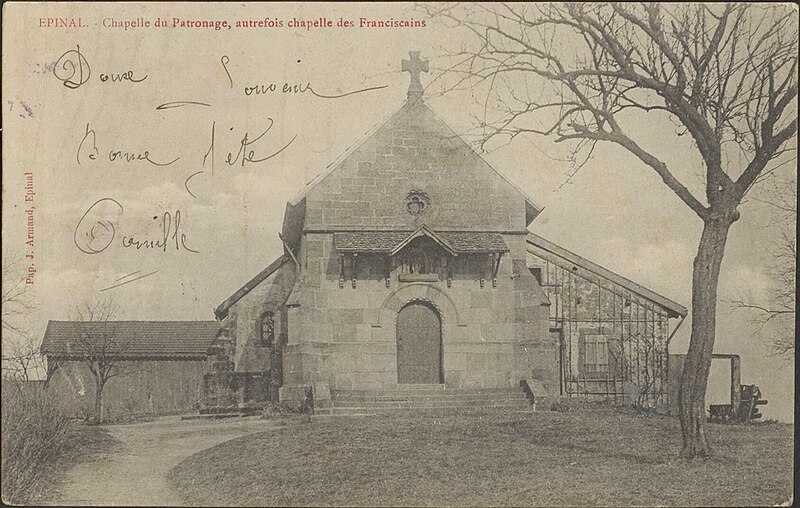 EPINAL. - Chapelle du Patronage, autrefois chapelle des Franciscains
Doux Souvenir
Bonne fête
Camille
Pap. J. Armand, Epinal